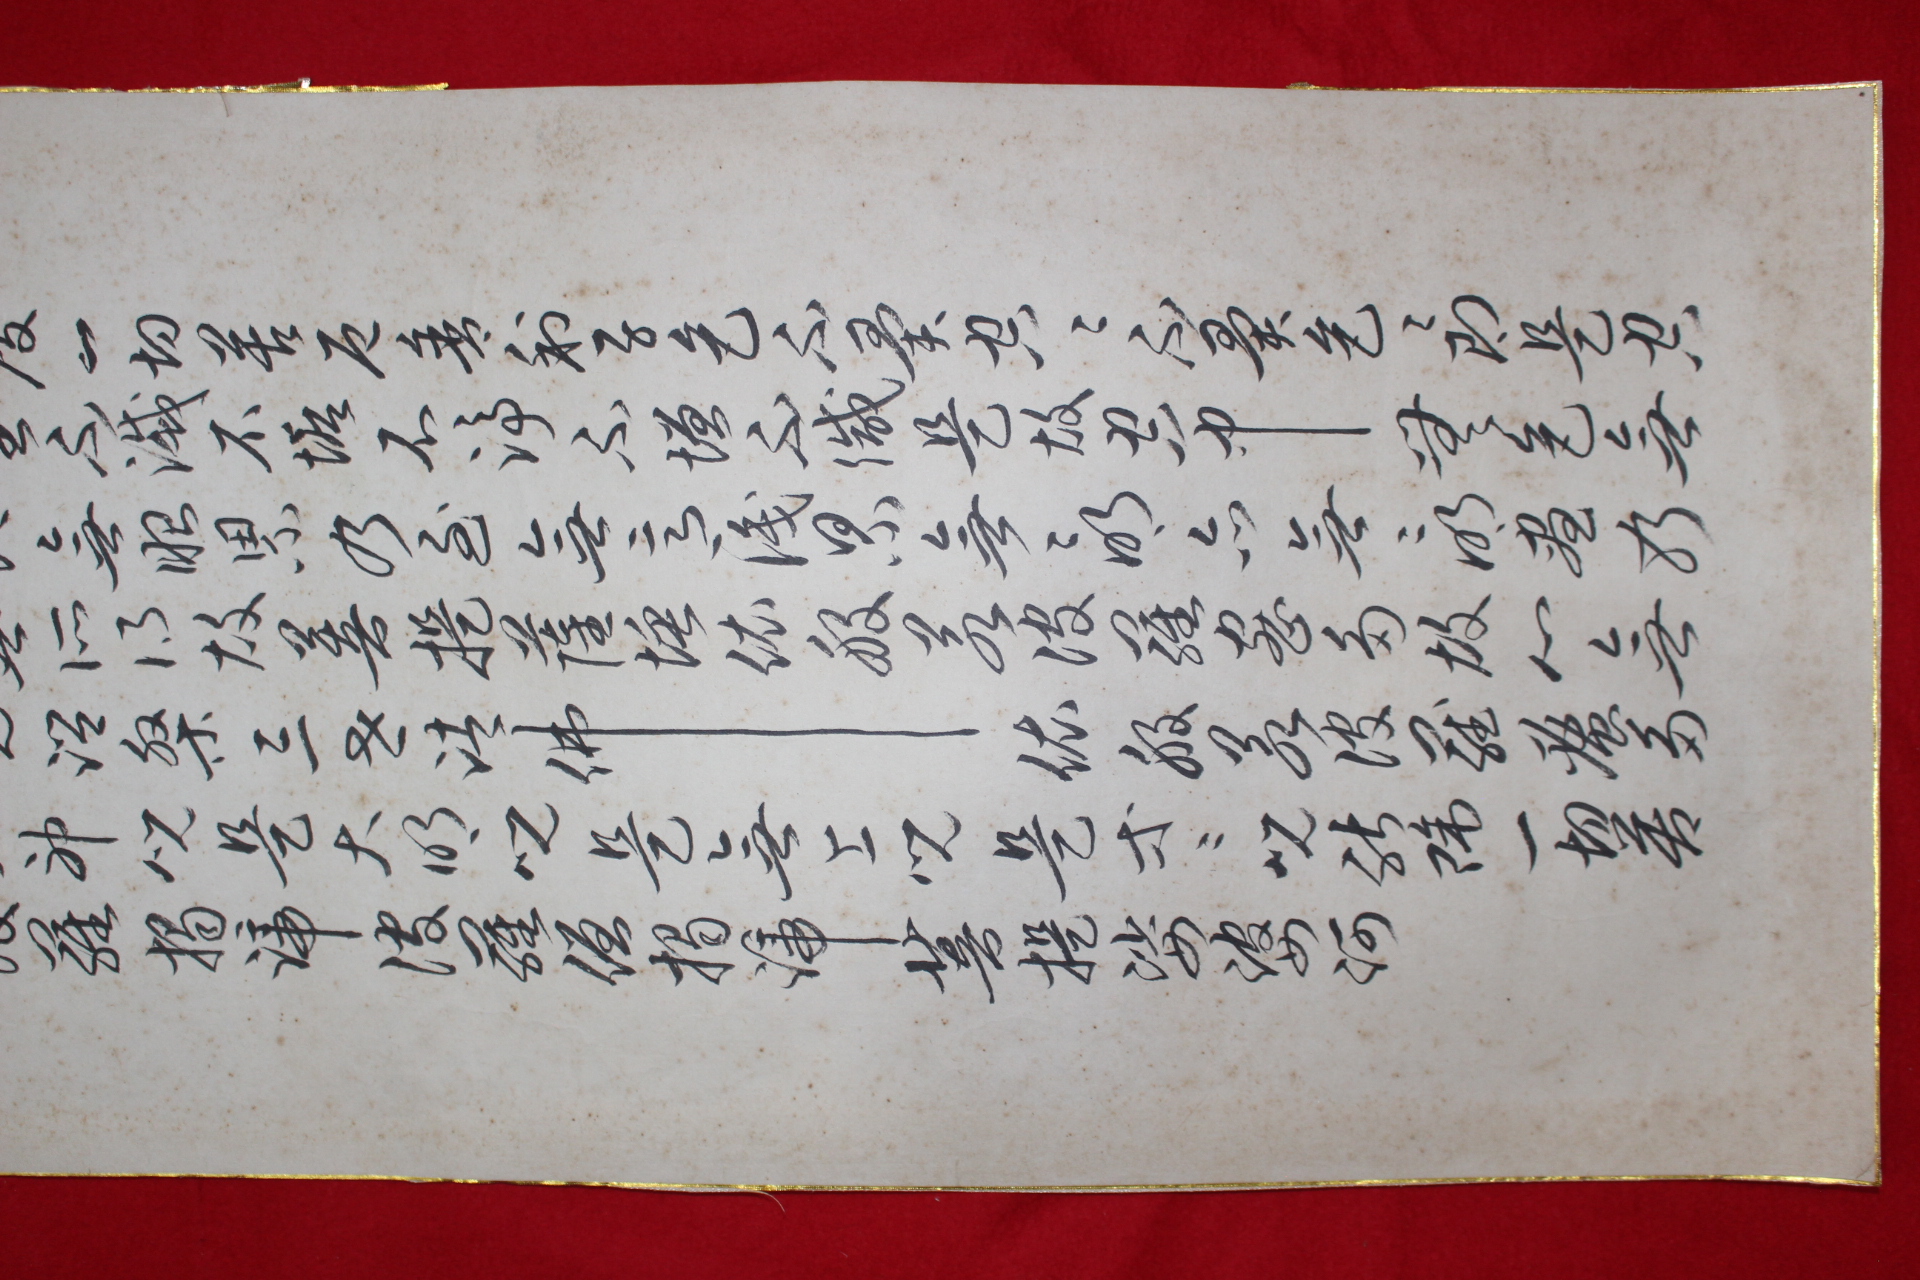 度一切苦厄舍利子色不異空〻不異色〻即是空
生不滅不垢不淨不增不減是故空中無色無
無眼界乃至無意識界無〻明亦無〻明盡乃
無所得故菩提薩埵依般若波羅蜜多故心無
竟涅槃三世諸佛依般若波羅蜜多
神呪是大明呪是無上呪是等〻呪能除一切苦
波羅揭諦波羅僧揭諦菩提娑婆訶